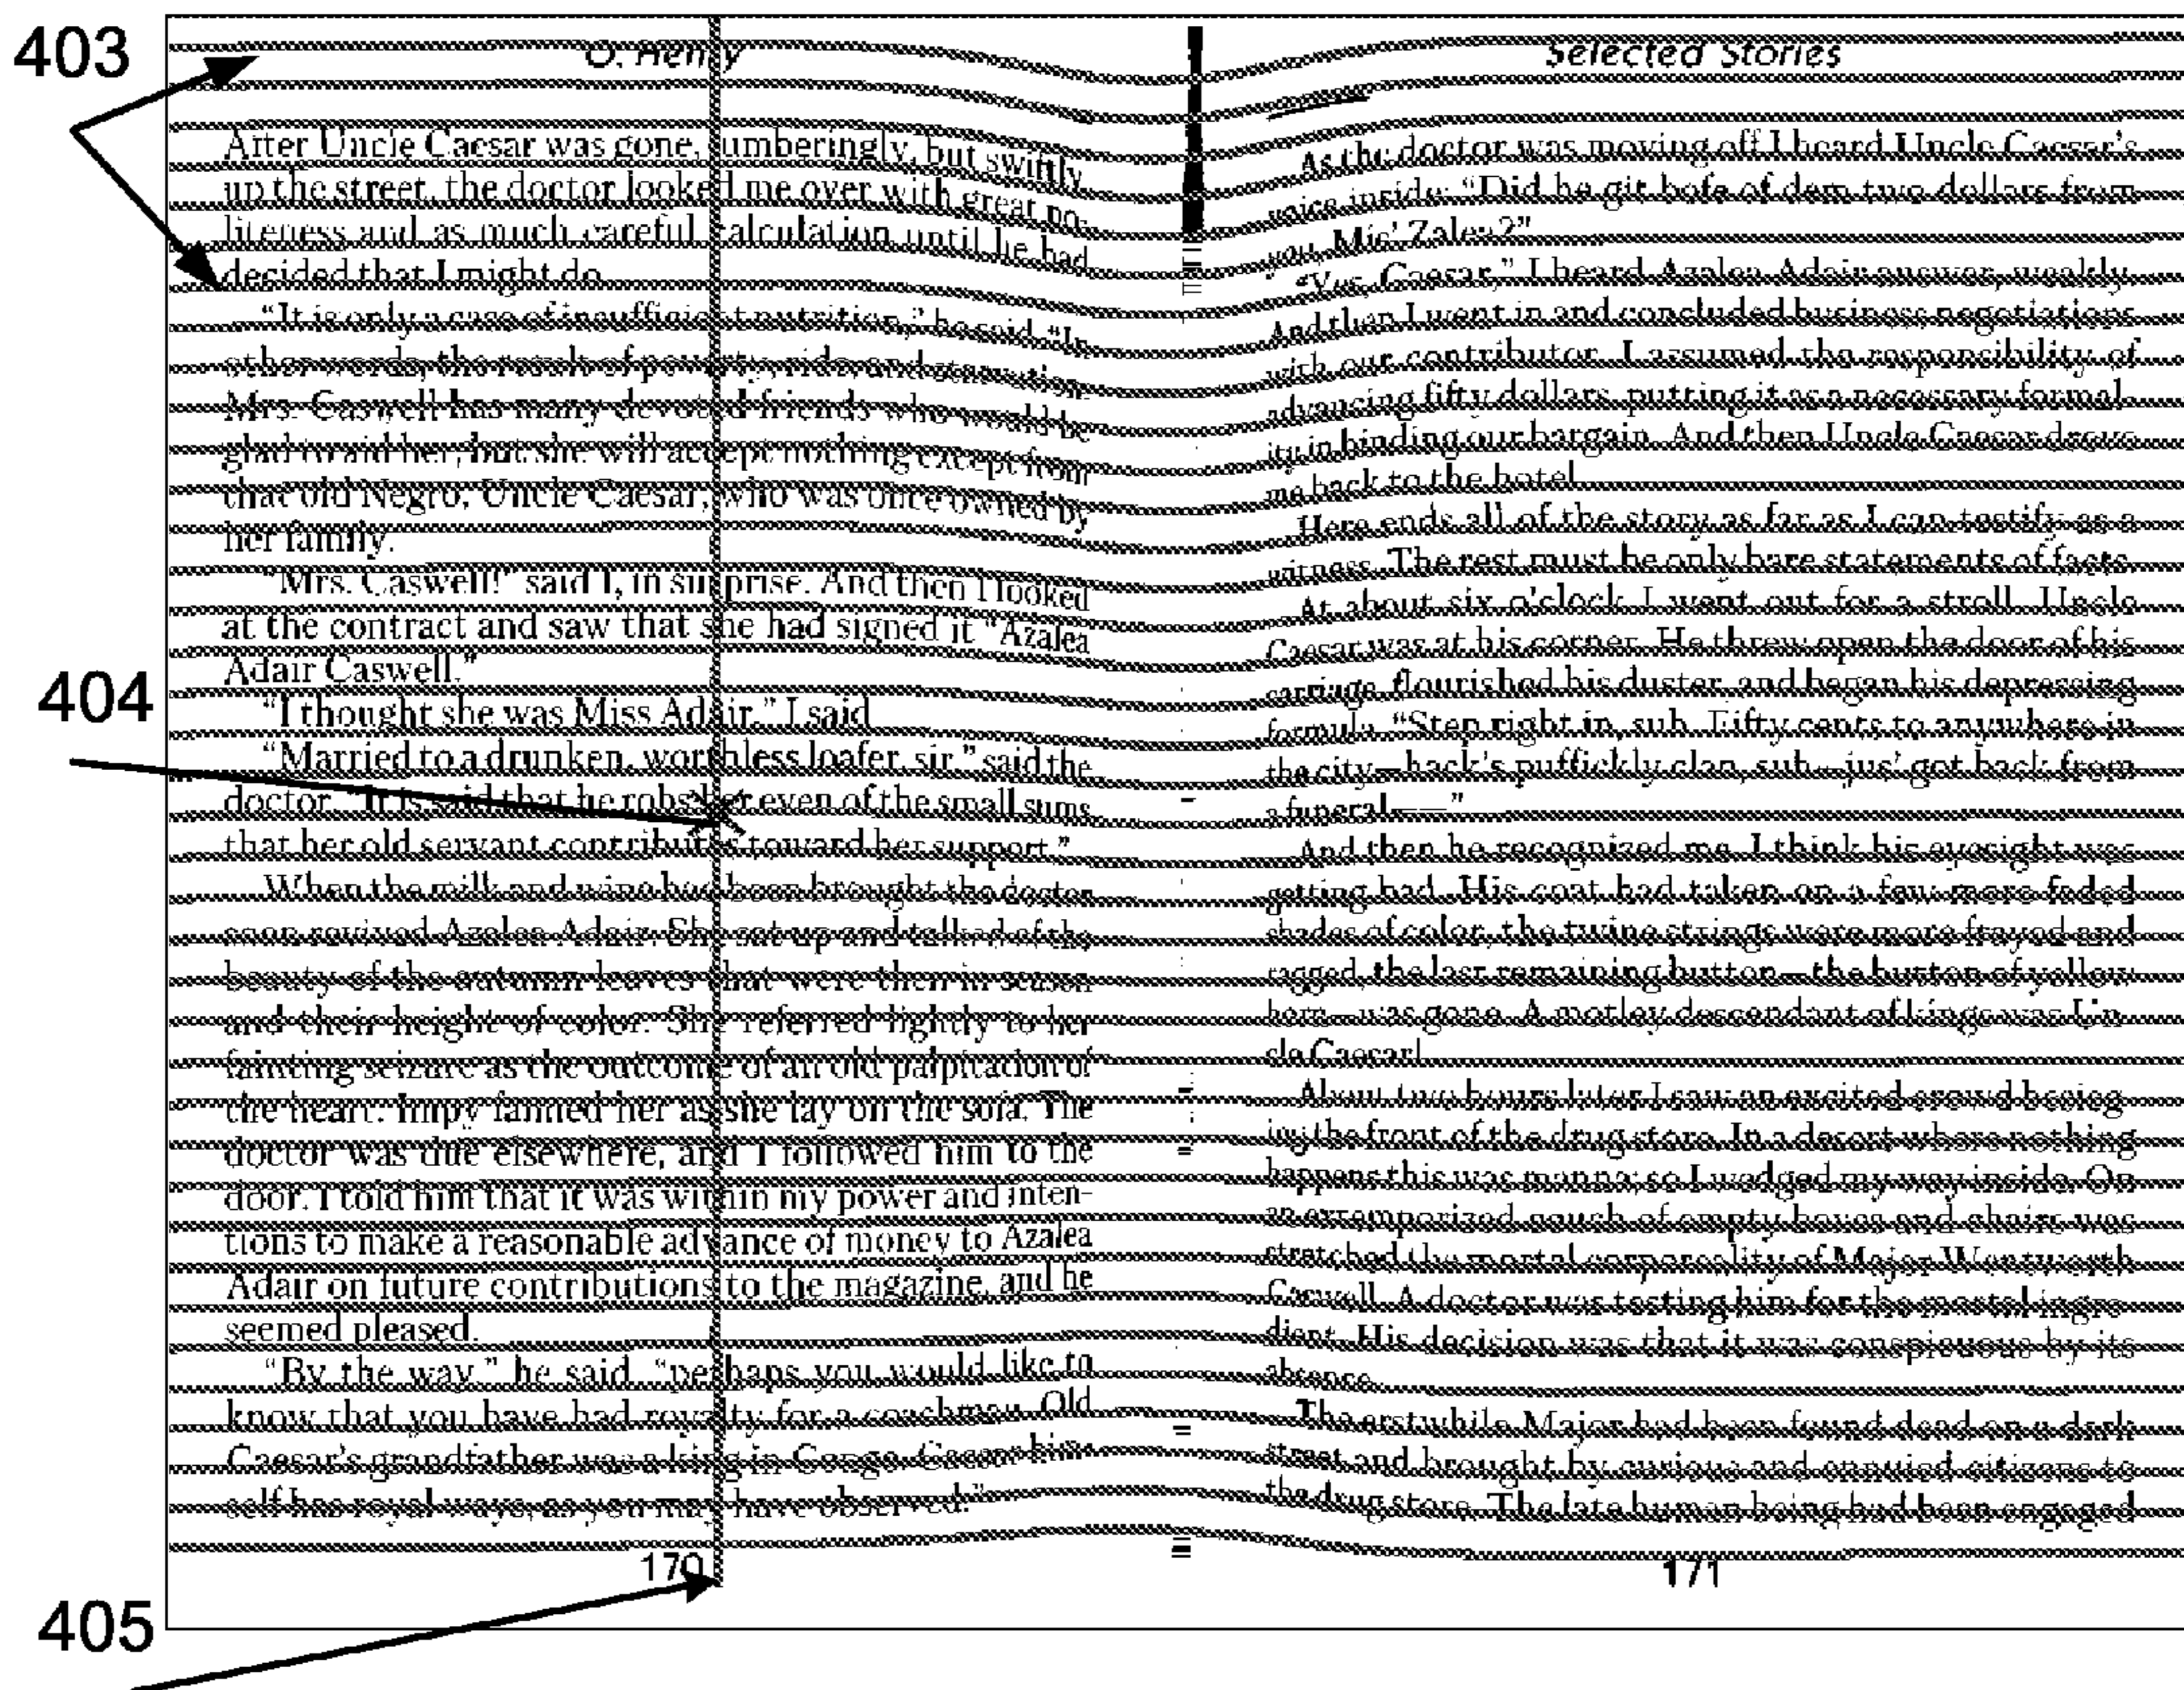 403
404
405
O. Henry
After Uncle Caesar was gone, lumberingly, but swiftly
up the street, the doctor looked me over with great po-
liteness and as much careful calculation until he had
decided that I might do.
“It is only a case of insufficient nutrition,” he said. “In
other words, the result of poverty, pride, and starvation.
Mrs. Caswell has many devoted friends who would be
glad to aid her, but she will accept nothing except from
that old Negro, Uncle Caesar, who was once owned by
her family.”
“Mrs. Caswell!” said I, in surprise. And then I looked
at the contract and saw that she had signed it “Azalea
Adair Caswell.”
“I thought she was Miss Adair,” I said.
“Married to a drunken, worthless loafer, sir,” said the
doctor. “It is said that he robs her even of the small sums
that her old servant contributes toward her support.”
When the milk and wine had been brought the doctor
soon revived Azalea Adair. She sat up and talked of the
beauty of the autumn leaves that were then in season
and their height of color. She referred lightly to her
fainting seizure as the outcome of an old palpitation of
the heart. Impy fanned her as she lay on the sofa. The
doctor was due elsewhere, and I followed him to the
door. I told him that it was within my power and inten-
tions to make a reasonable advance of money to Azalea
Adair on future contributions to the magazine, and he
seemed pleased.
“By the way,” he said, “perhaps you would like to
know that you have had royalty for a coachman. Old
Caesar’s grandfather was a king in Congo. Caesar him-
self has royal ways, as you may have observed.”
170
Selected Stories
As the doctor was moving off I heard Uncle Caesar’s
voice inside: “Did he git bofe of dem two dollars from
you, Mis’ Zalea?”
“Yes, Caesar,” I heard Azalea Adair answer, weakly.
And then I went in and concluded business negotiations
with our contributor. I assumed the responsibility of
advancing fifty dollars, putting it as a necessary formal-
ity in binding our bargain. And then Uncle Caesar drove
me back to the hotel.
Here ends all of the story as far as I can testify as a
witness. The rest must be only bare statements of facts.
At about six o’clock I went out for a stroll. Uncle
Caesar was at his corner. He threw open the door of his
carriage, flourished his duster, and began his depressing
formula: “Step right in, suh. Fifty cents to anywhere in
the city—hack’s puffickly clean, suh—jus’ got back from
a funeral——”
And then he recognized me. I think his eyesight was
getting bad. His coat had taken on a few more faded
shades of color, the twine strings were more frayed and
ragged, the last remaining button—the button of yellow
horn—was gone. A motley descendant of kings was Un-
cle Caesar!
About two hours later I saw an excited crowd besieg-
ing the front of the drug store. In a desert where nothing
happens this was manna; so I wedged my way inside. On
an extemporized couch of empty boxes and chairs was
stretched the mortal corporeality of Major Wentworth
Caswell. A doctor was testing him for the mortal ingre-
dient. His decision was that it was conspicuous by its
absence.
The erstwhile Major had been found dead on a dark
street and brought by curious and ennuied citizens to
the drug store. The late human being had been engaged
171